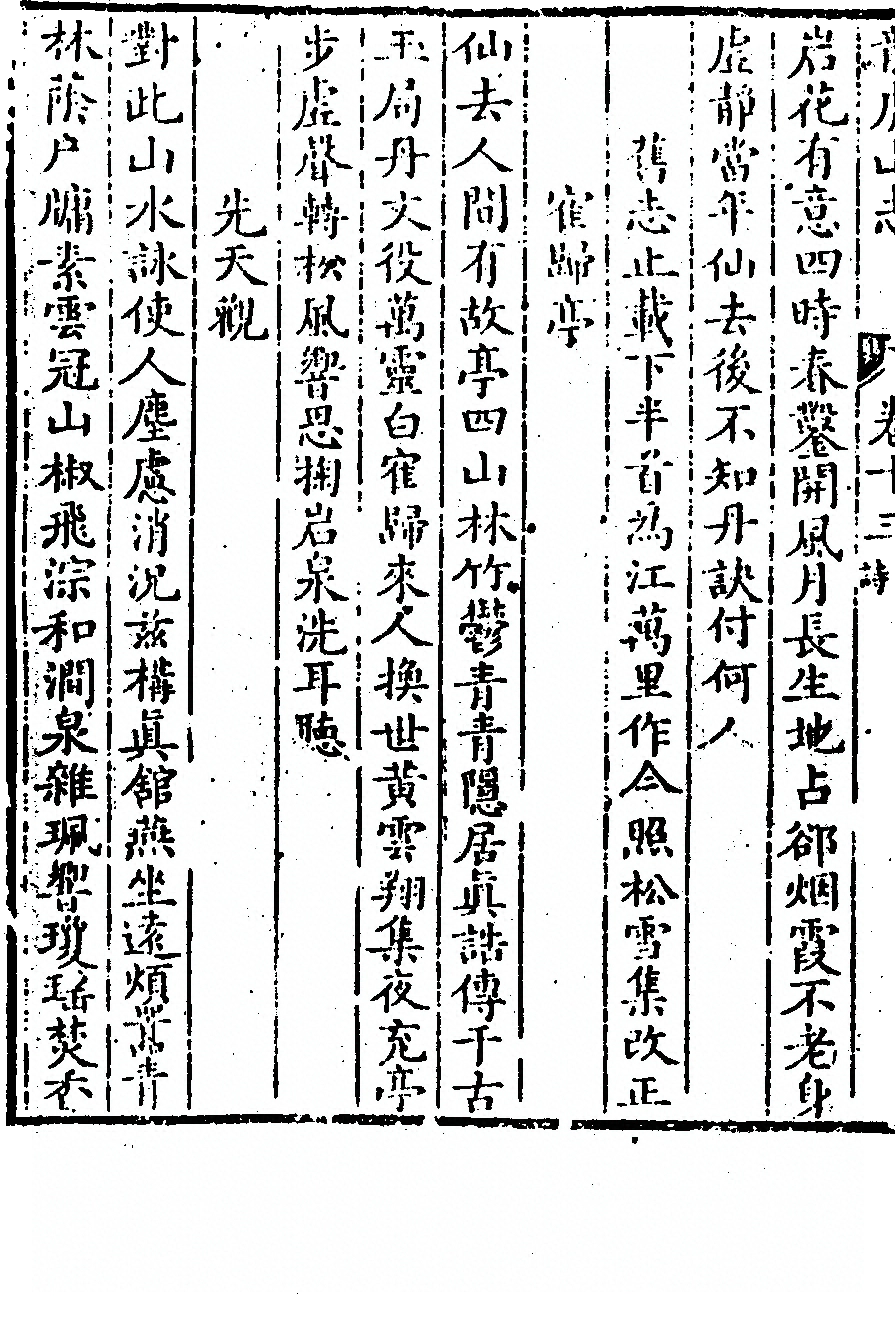 龍虎山志 卷十三 詩
岩花有意四時春鑿開風月長生地占郤烟霞不老身
虛靜當年仙去後不知丹訣付何人
舊志止載下半首為江萬里作今照松雪集改正
寉歸亭
仙去人間有故亭四山林竹鬱青青隱居眞誥傳千古
玉局丹文役萬靈白寉歸來人換世黃雲翔集夜充亭
步虛聲轉松風響思掬岩泉洗耳聽
先天觀
對此山水詠使人塵慮消況茲構眞舘燕坐遠煩嚣青
林蔭户牖素雲冠山椒飛淙和澗泉雜珮響瓊瑤焚香